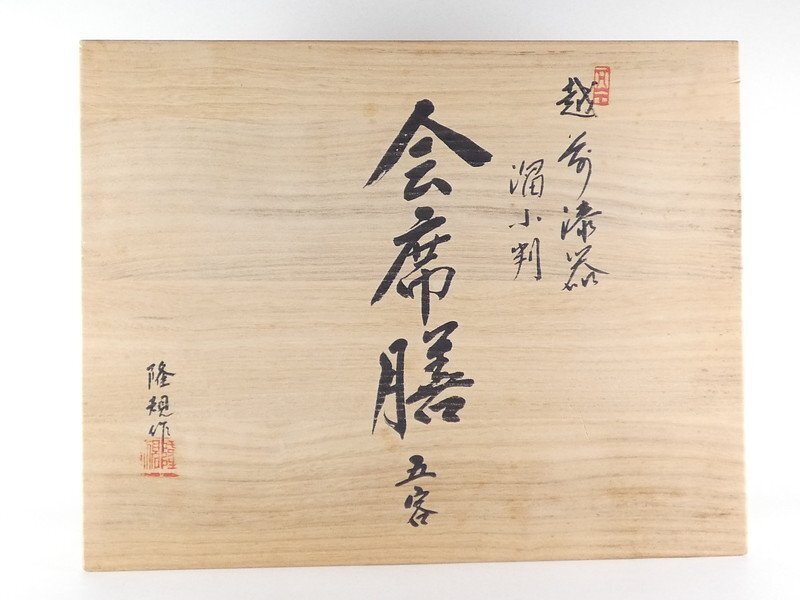 越前漆器
溜小判
会席膳 五客
隆規作